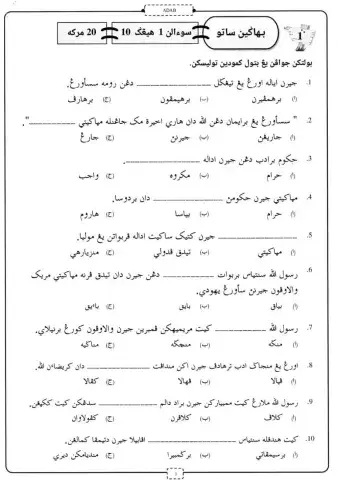 ADAB
بهاݢين ساتو
سوءالن 1 هيڠݢ 10
20 مركه
1
بولتكن جواڤن يڠ بتول كمودين توليسكن.
1. جيرن اياله اورڠ يڠ تيڠݢل ............ دڠن رومه سسأورڠ.
(ا) برهمڤيرن (ب) برهيمڤون (ج) برهارڤ
2. " سسأورڠ يڠ برايمان دڠن الله دان هاري اخيرة مک جاڠنله مپاكيتي ............".
(ا) جاريڠن (ب) جيرنن (ج) جارڠ
3. حكوم برادب دڠن جيرن اداله ............
(ا) حرام (ب) مكروه (ج) واجب
4. مپاكيتي جيرن حكومن ............ دان بردوسا.
(ا) حرام (ب) بياسا (ج) هاروم
5. ............ جيرن كتيک ساكيت اداله ڤربواتن يڠ موليا.
(ا) مپاكيتي (ب) تيدق ڤدولي (ج) منزيارهي
6. رسول الله سنتياس بربوات ............ دڠن جيرن دان تيدق ڤرنه مپاكيتي مريک والاوڤون جيرنن سأورڠ يهودي.
(ا) بياق (ب) بايق (ج) باءيق
7. رسول الله ............ كيت مريمبهكن ڤمبرين جيرن والاوڤون كورڠ برنيلاي.
(ا) منکه (ب) منجڬكه (ج) مناكيه
8. اورڠ يڠ منجاݢ ادب ترهادڤ جيرن اكن منداڤت ............ دان كريضاءن الله.
(ا) ڤيالا (ب) ڤهالا (ج) كڤالا
9. رسول الله ملارڠ كيت ممبياركن جيرن براد دالم ............ سدڠكن كيت ككڽڠن.
(ا) كلاڤ (ب) كلاڤرن (ج) كڤولاوان
10. كيت هندقله سنتياس ............ اڤابيلا جيرن دتيمڤا كمالڠن.
(ا) برسيمڤاتي (ب) برݢمبيرا (ج) منديامكن ديري
1